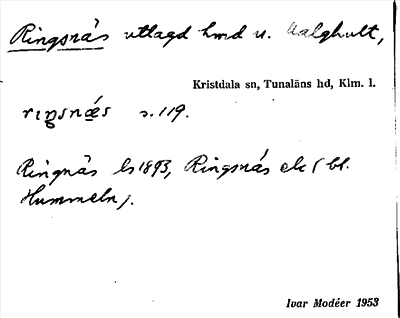 Ringsnäs utlagd hmd u. Aalghult,
Kristdala sn, Tunaläns hd, Klm. l.
riŋsnǽs s. 119.
Ringnäs ls 1893, Ringsnäs ek (bl.
Hummeln).
Ivar Modéer 1953